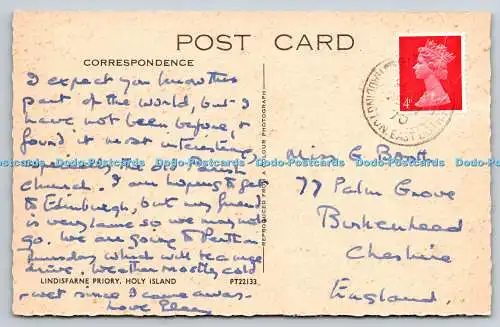 POST CARD
CORRESPONDENCE
I expect you know this
part of the world, but I
have not been before, &
found it most interesting,
especially the old Parish
Church. I am hoping to get
to Edinburgh, but my friend
is very lame so we may not
go. We are going to Perth on
Thursday which will be a nice
drive. Weather mostly cold
& wet since I came away.
Love
LINDISFARNE PRIORY, HOLY ISLAND
PT22133
REPRODUCED FROM A COLOUR PHOTOGRAPH
HADDINGTON EAST LOTHIAN
70
4d
Miss G
77 Palm Grove
Birkenhead
Cheshire
England.
Dodo-Postcards Dodo-Postcards Dodo-Postcards Dodo-Postcards Dodo-Postcards